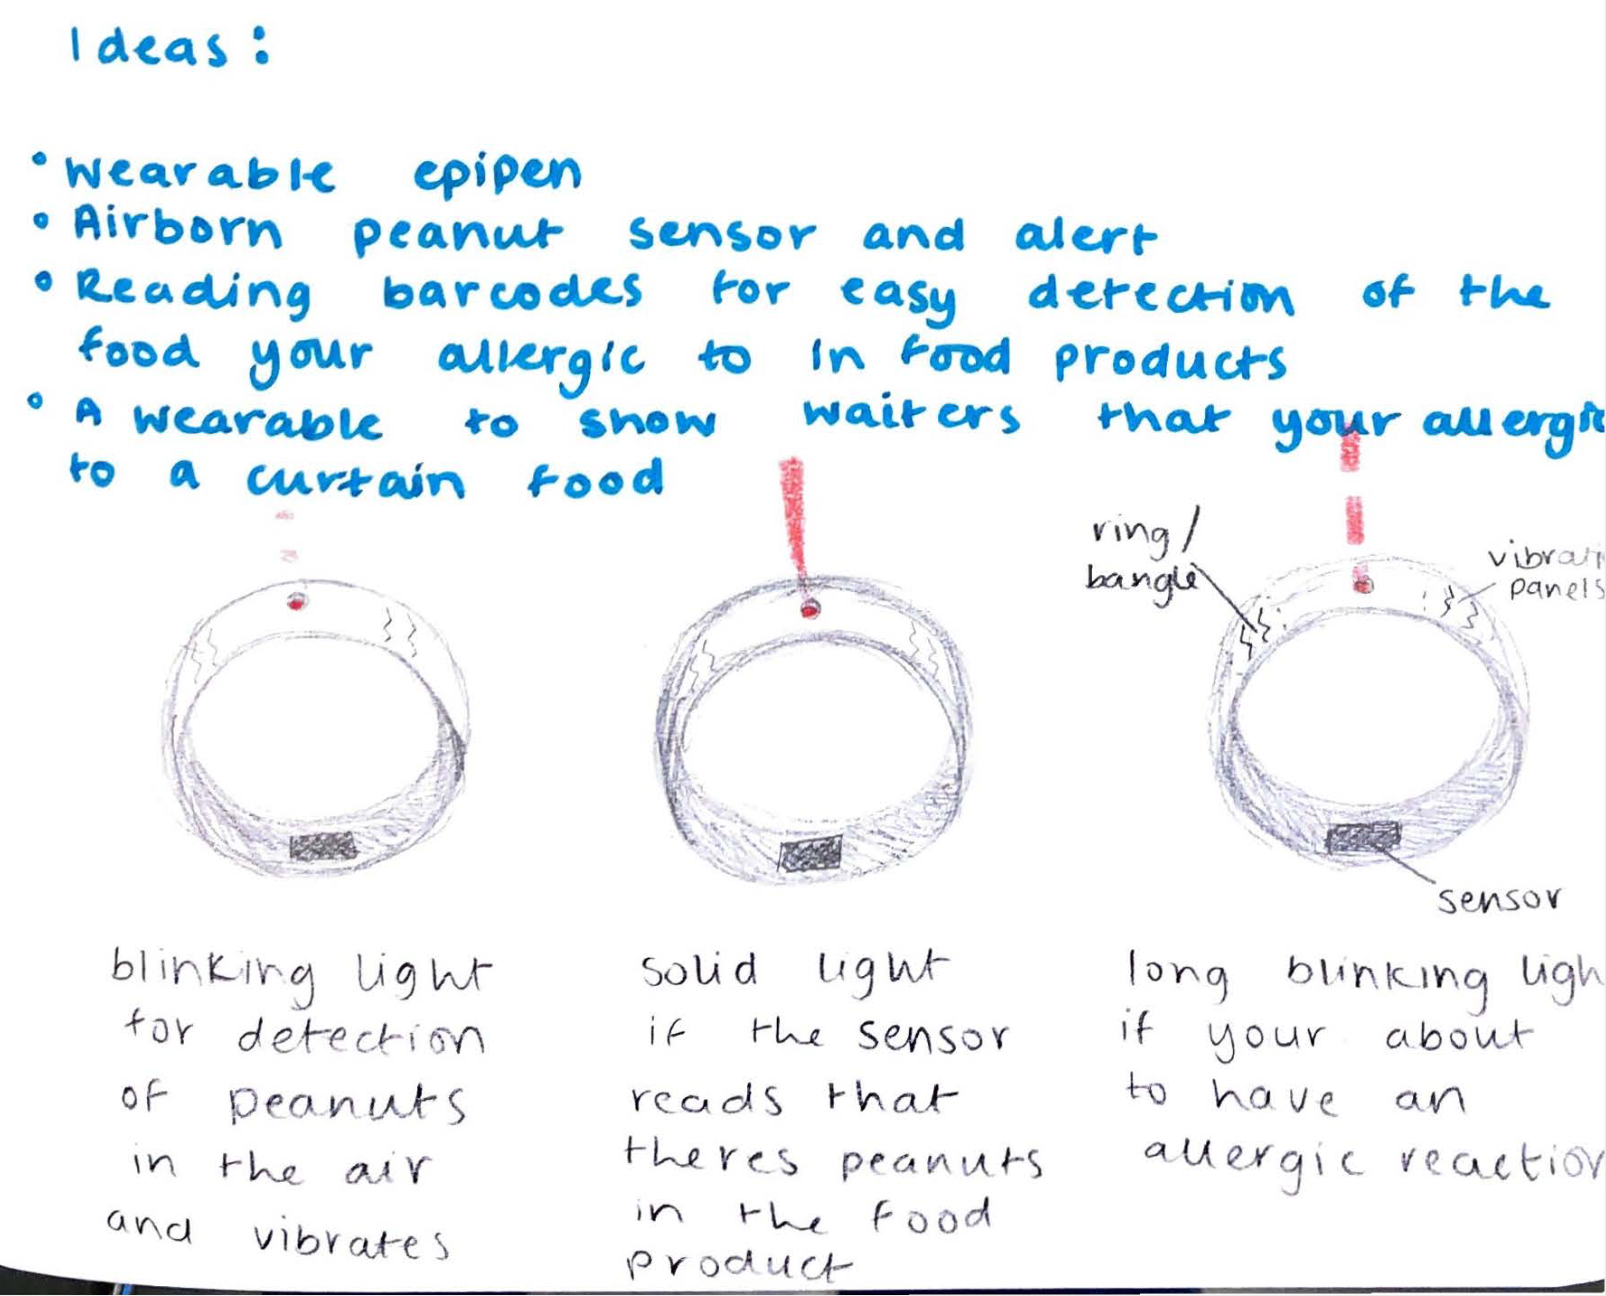 Ideas:
• Wearable epipen
• Airborn peanut sensor and alert
• Reading barcodes for easy detection of the
food your allergic to in food products
• A wearable to show waiters that your allergic
to a curtain food
ring/
bangle
vibrati
panels
sensor
blinking light
for detection
of peanuts
in the air
and vibrates
solid light
if the sensor
reads that
theres peanuts
in the food
product
long blinking ligh
if your about
to have an
allergic reaction